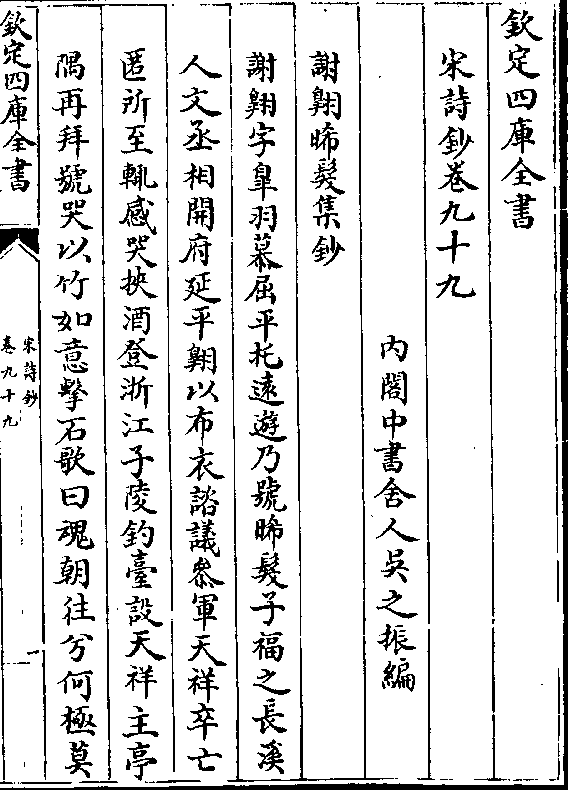 欽定四庫全書
宋詩鈔卷九十九
內閣中書舍人吳之振編
謝翱晞髮集鈔
謝翱字臯羽慕屈平托遠遊乃號晞髮子福之長溪
人文丞相開府延平翱以布衣諮議叅軍天祥卒亡
匿所至輙感哭挾酒登浙江子陵釣臺設天祥主亭
隅再拜號哭以竹如意擊石歌曰魂朝往兮何極莫
欽定四庫全書
宋詩鈔
卷九十九
一